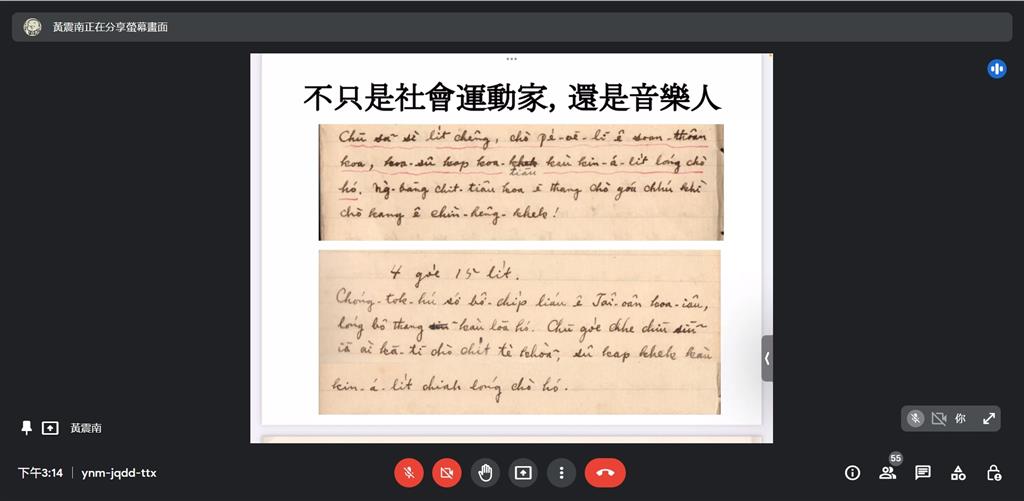 黃震南正在分享螢幕畫面
不只是社會運動家, 還是音樂人
Chū saⁿ sì li̍t chêng, chò pê-ōe-lī ê soan-thoân
koa, koa-sû kap koa-tiāu kàu kin-á-li̍t lóng chò
hó. Ǹg-bāng chit-tiâu koa ē thang chò góa chhú khì
chò kang ê chìn-hêng-khek!
4 goe̍h 15 li̍t.
Chóng-tok-hú só͘ bō͘-chi̍p liáu ê Tâi-oân koa-iâu,
lóng bô thang kàu lōa hó. Chū goe̍h chhe chiū
iā ài ka-tī chò chi̍t tè khòaⁿ, sû kap khek kàu
kin-á-li̍t chiah lóng chò hó.
黃震南
你
下午3:14 | ynm-jqdd-ttx
55